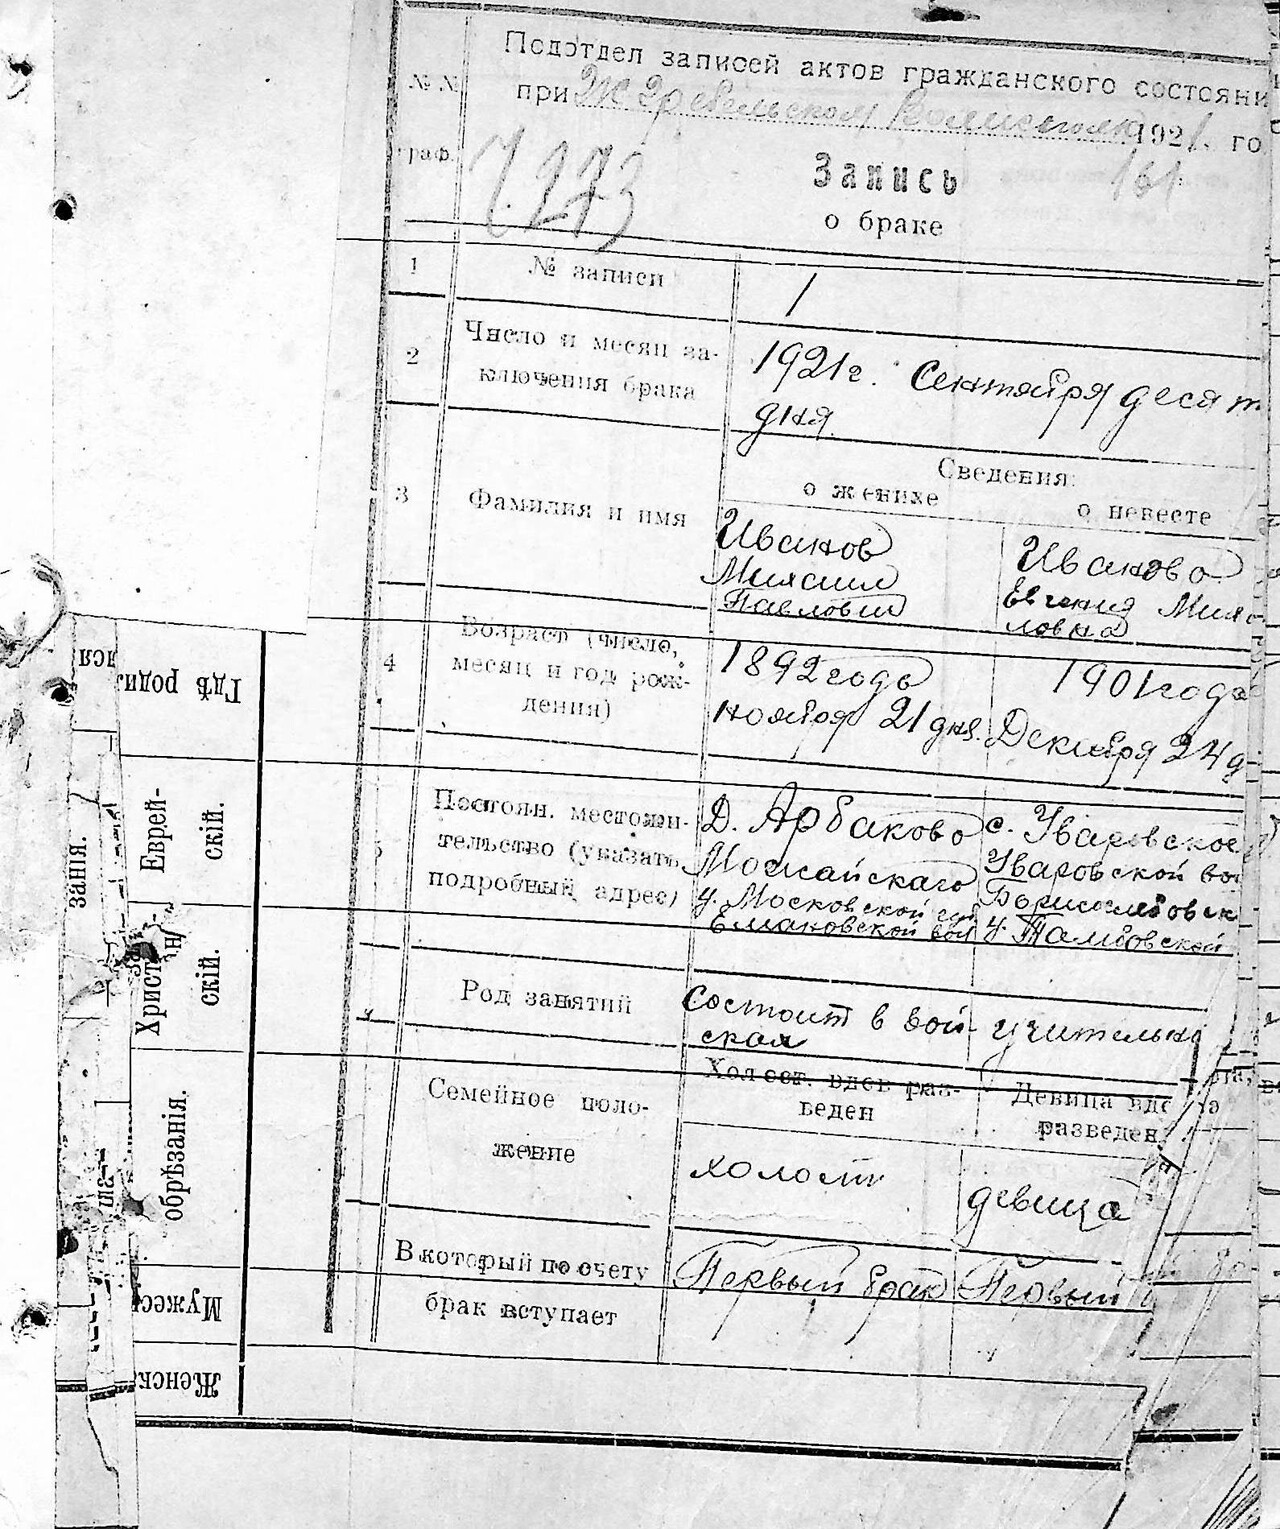 Подотдел записей актов гражданского состояни
№ №
при Волисполк 1921. го
граф.
7.273
Запись
161
о браке
1
№ записи
1
2
Число и месяц за-
ключения брака
1921г. Сентября десят
дня.
Сведения:
о женихе
о невесте
3
Фамилия и имя
Иванов
Михаил
Павлович
Иванова
Евгения Миха
ловна
4
Возраст (число,
месяц и год рож-
дения)
1892 года
ноября 21 дня.
1901 года
Декабря 24 д
5
Постоян. местожи-
тельство (указать
подробный адрес)
Д. Арбаково
Можайскаго
у. Московской губ
Елмановской вол
с. Уваровское
Уваровской во
Борисоглебовск
у. Тамбовской
Род занятий
Состоит в вой-
сках
учительн
Семейное поло-
жение
Холост. вдов раз-
веден
Девица вдо
разведен
холост
девица
В который по счету
брак вступает
Первый брак
Первый
Гдѣ роди
лся
Еврей-
скій.
Христ
скій.
занія.
обрѣзанія.
Мужес
Женск